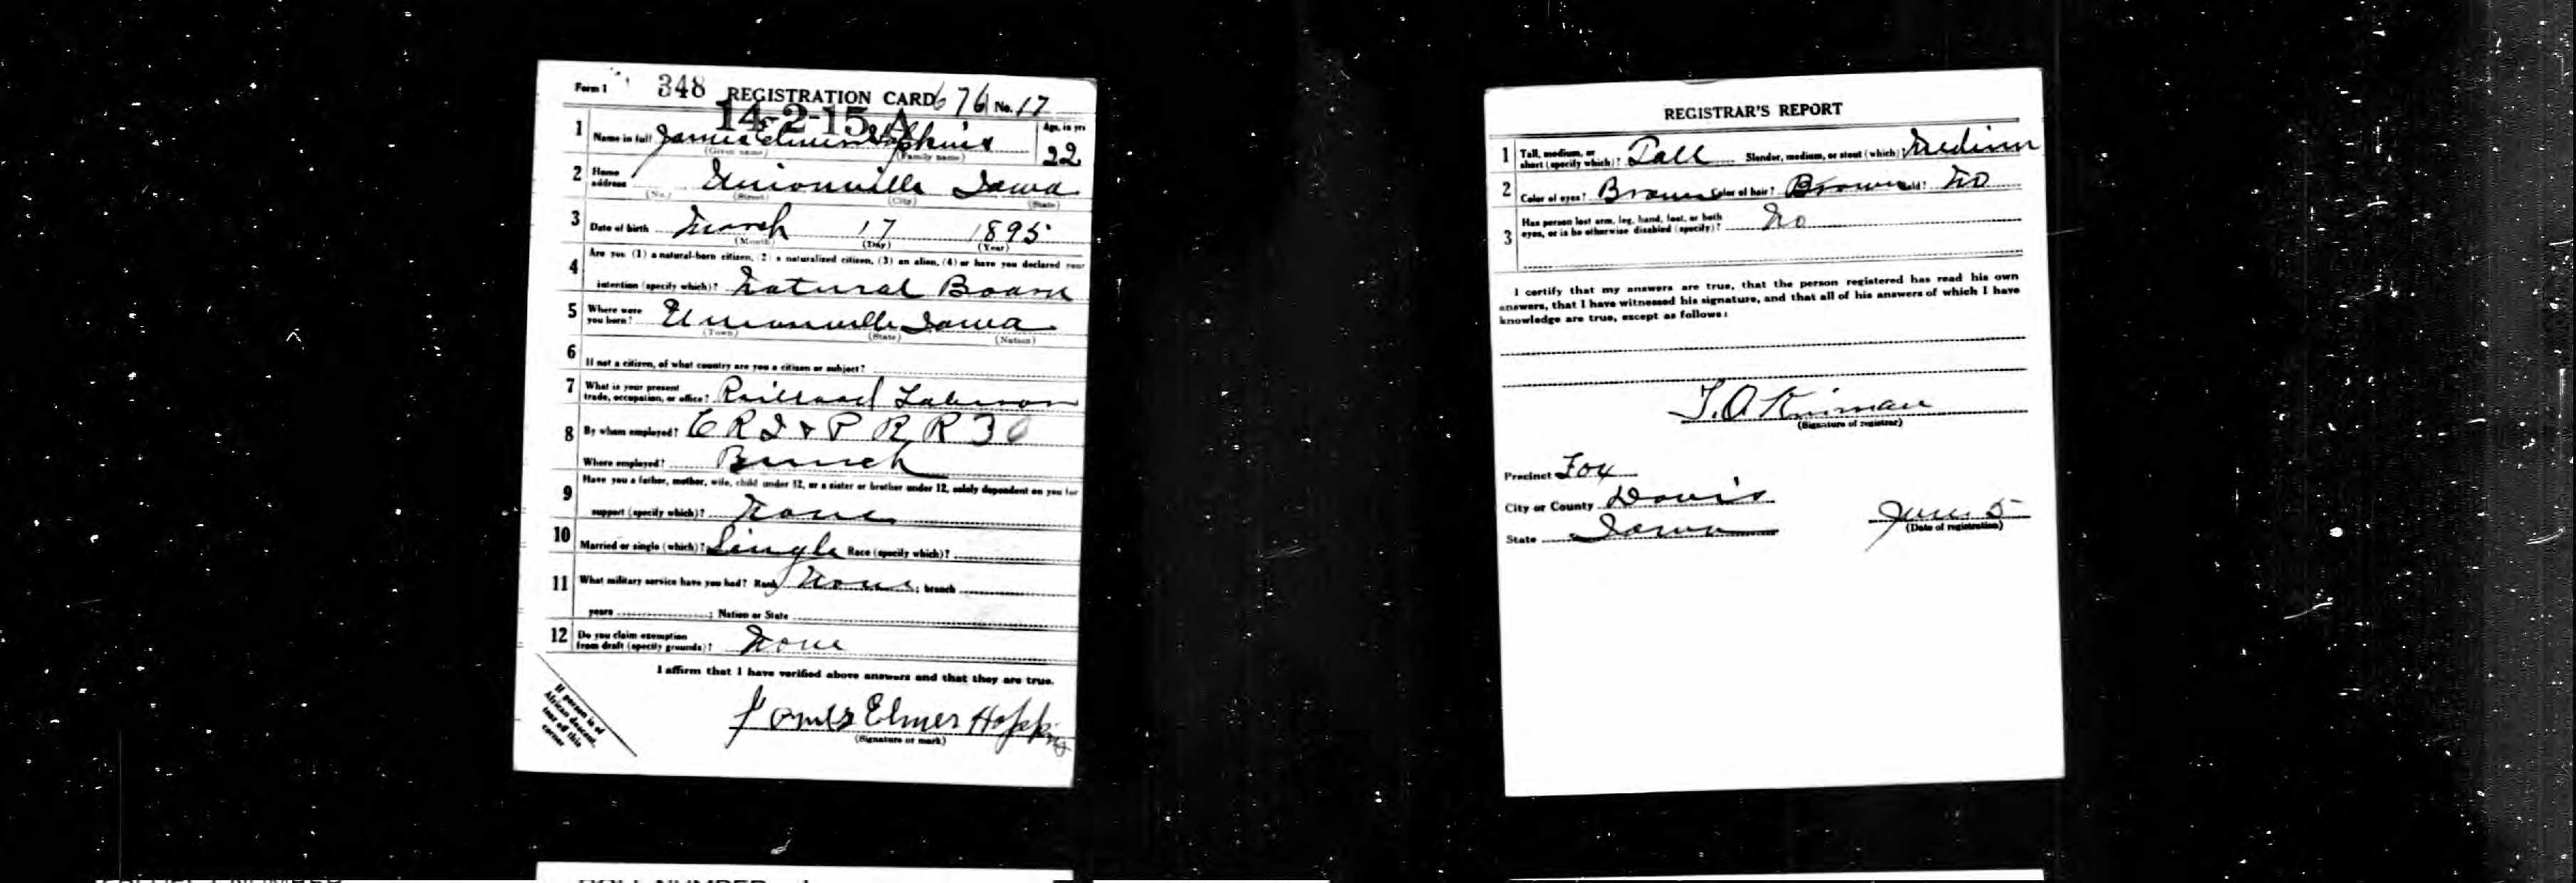 Form 1 348 REGISTRATION CARD 676 No. 17
14-2-15 A
1 Name in full James Elmer Hopkins Age, in yrs
(Given name) (Family name) 22
2 Home address Unionville Iowa
(No.) (Street) (City) (State)
3 Date of birth March 17 1895
(Month) (Day) (Year)
4 Are you (1) a natural-born citizen, (2) a naturalized citizen, (3) an alien, (4) or have you declared your
intention (specify which)? Natural Boarn
5 Where were you born? Unionville Iowa
(Town) (State) (Nation)
6 If not a citizen, of what country are you a citizen or subject?
7 What is your present trade, occupation, or office? Railroad
8 By whom employed? C R I & P R R
Where employed? Bunch
9 Have you a father, mother, wife, child under 12, or a sister or brother under 12, solely dependent on you for
support (specify which)? None
10 Married or single (which)? Single Race (specify which)?
11 What military service have you had? Rank None; branch
years ; Nation or State
12 Do you claim exemption from draft (specify grounds)? None
I affirm that I have verified above answers and that they are true.
James Elmer Hopkins
(Signature or mark)
If person is of
African descent,
tear off this
corner
REGISTRAR'S REPORT
1 Tall, medium, or short (specify which)? Tall Slender, medium, or stout (which)? Medium
2 Color of eyes? Brown Color of hair? Brown Bald? No
3 Has person lost arm, leg, hand, foot, or both
eyes, or is he otherwise disabled (specify)? No
I certify that my answers are true, that the person registered has read his own
answers, that I have witnessed his signature, and that all of his answers of which I have
knowledge are true, except as follows:
(Signature of registrar)
Precinct Fox
City or County Davis
State Iowa
June 5
(Date of registration)